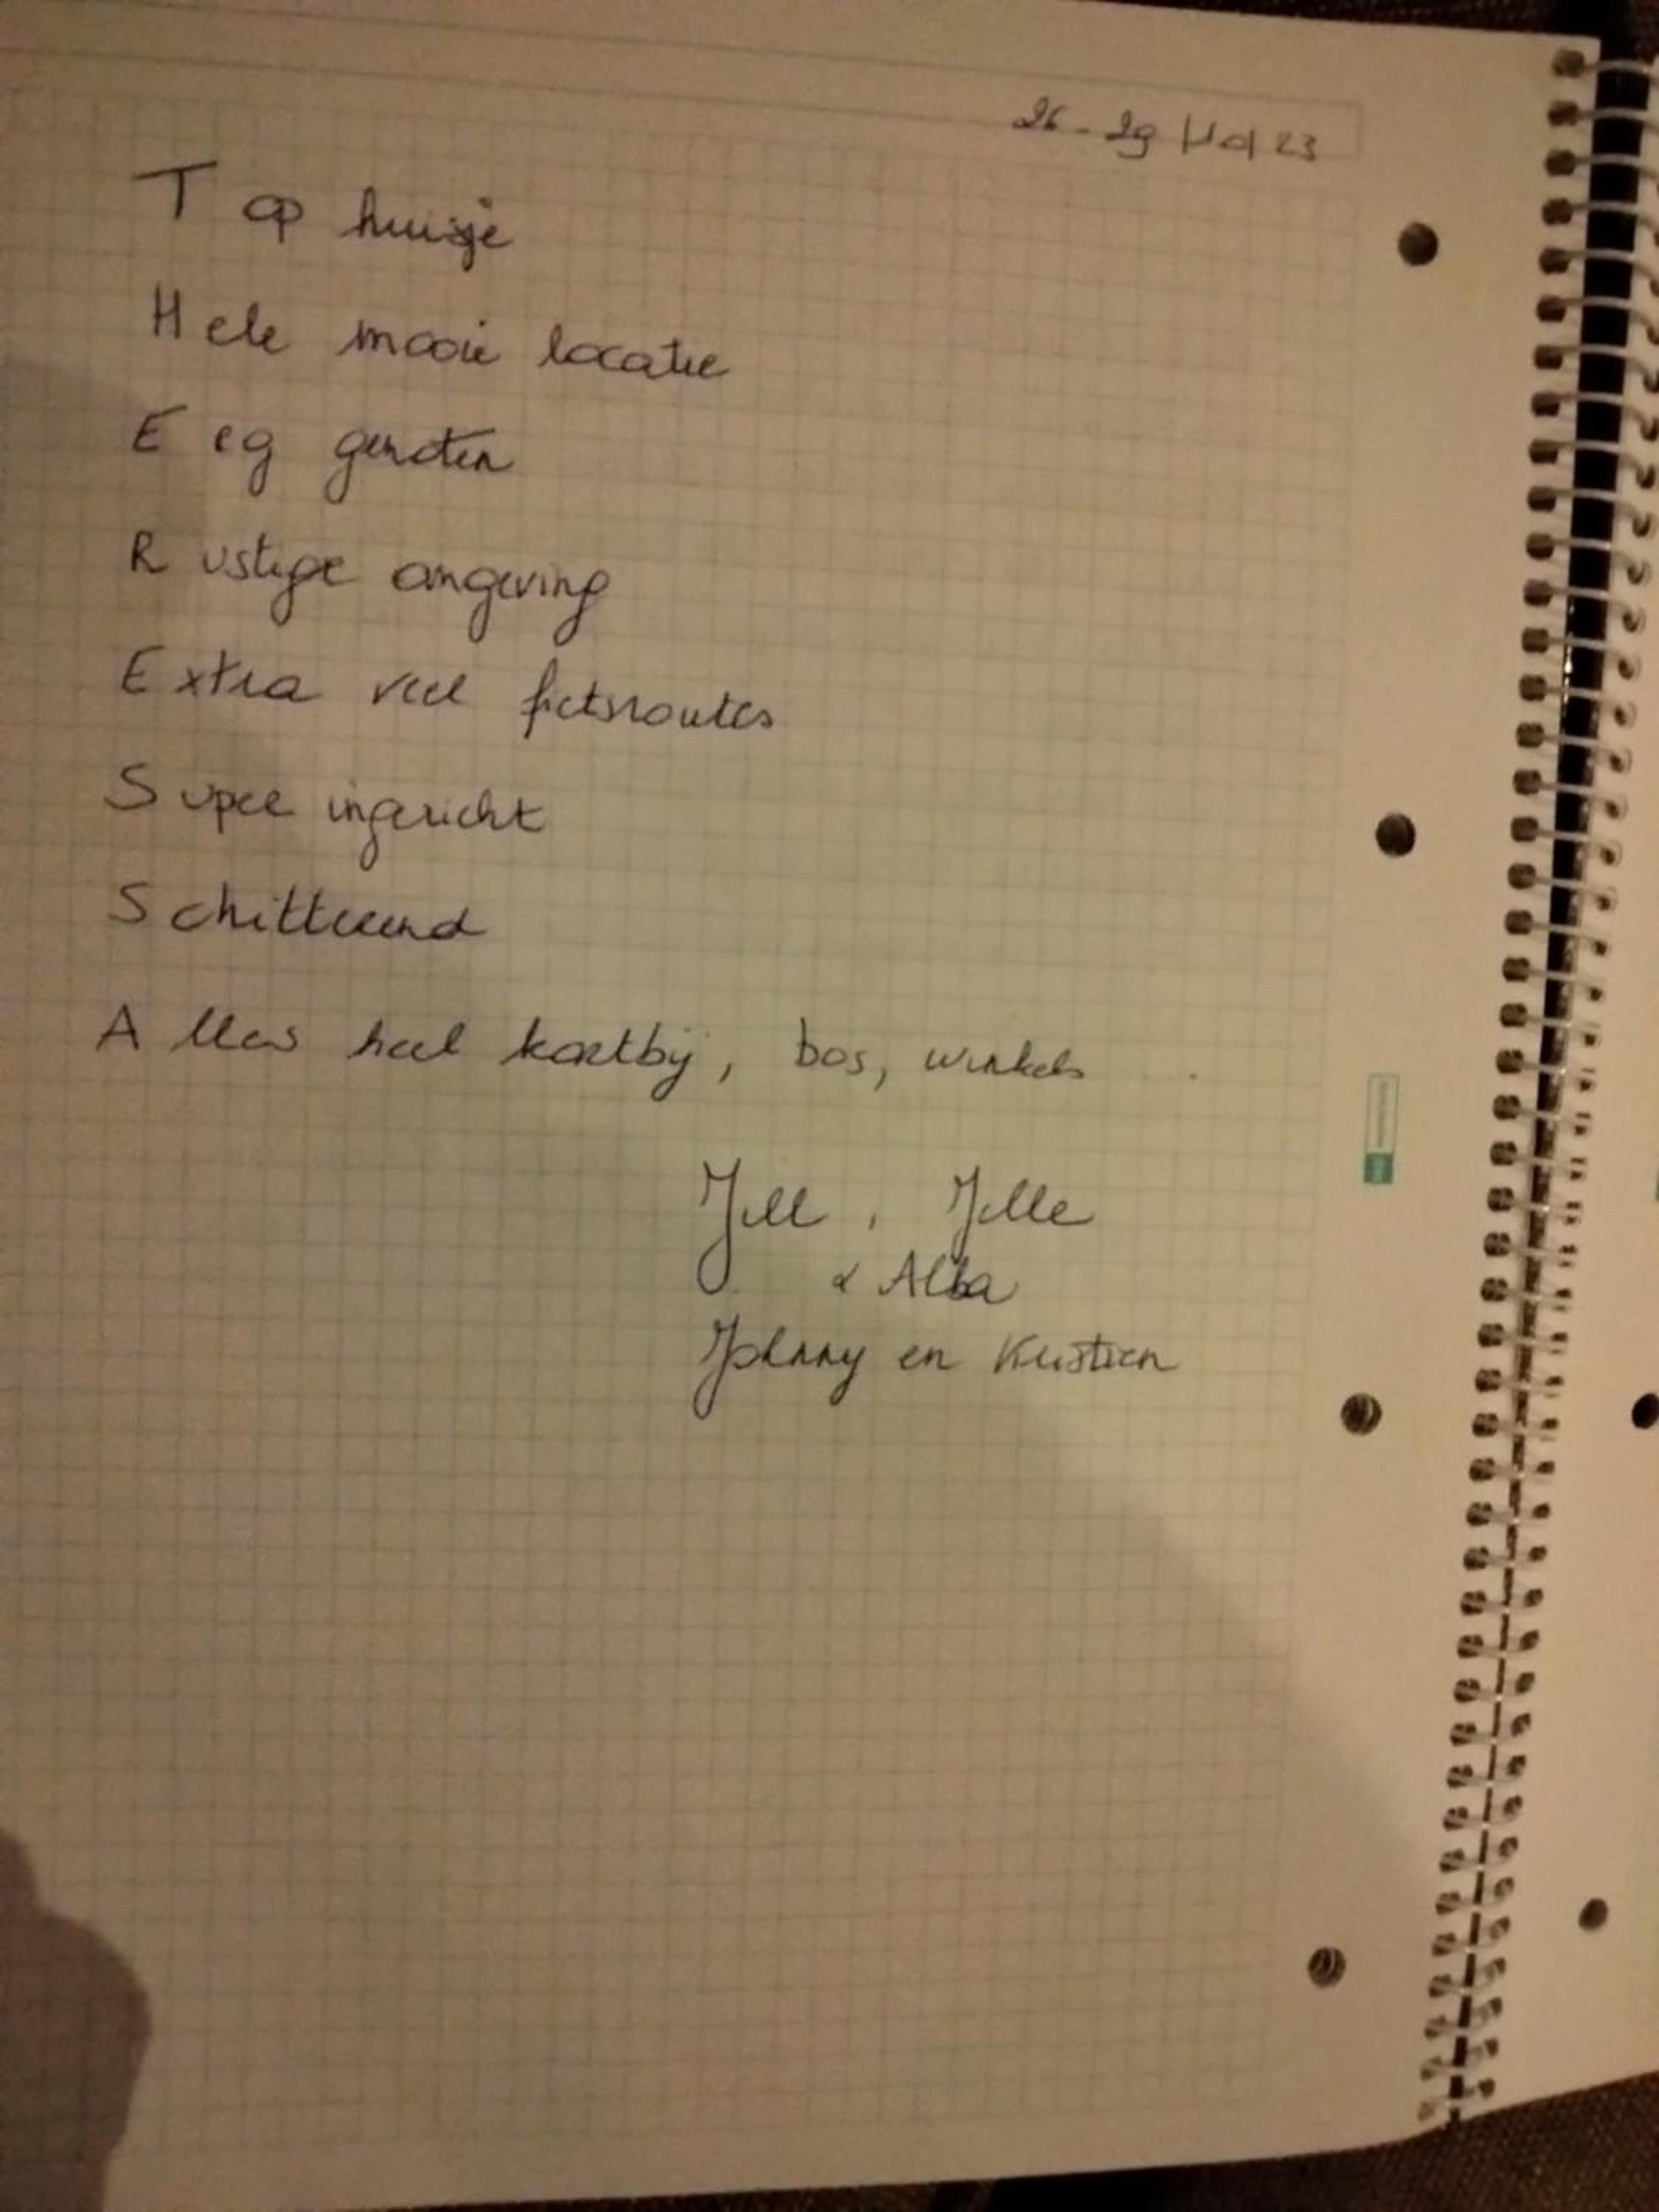 26 - 29 Mei 23
Top huisje
Hele mooie locatie
Erg genoten
Rustige omgeving
Extra veel fietsroutes
Super ingericht
Schitterend
Alles heel kortbij, bos, winkels ...
Jill, Jelle
& Alba
Johnny en Kristien